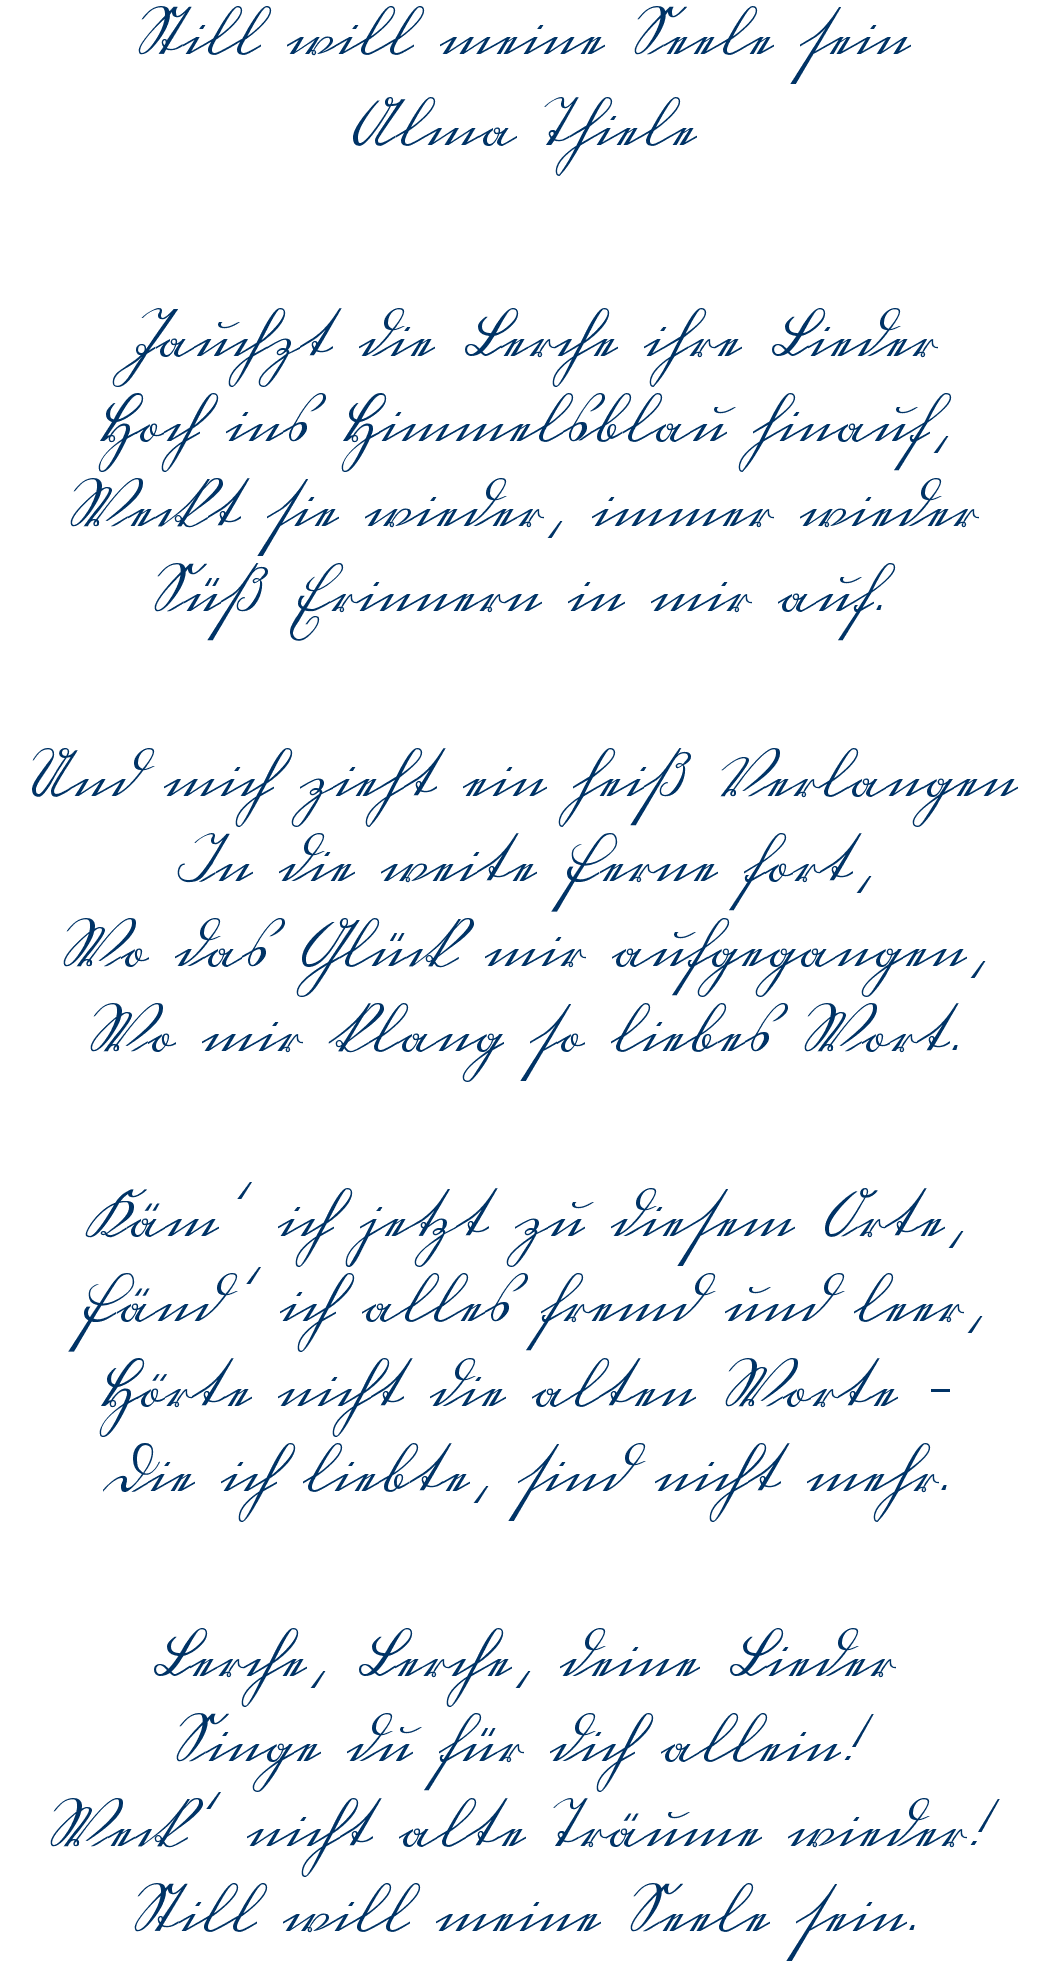 Still will meine Seele sein
Alma Thiele
Jauchzt die Lerche ihre Lieder
Hoch ins Himmelsblau hinauf,
Weckt sie wieder, immer wieder
Süß Erinnern in mir auf.
Und mich zieht ein heiß Verlangen
In die weite Ferne fort,
Wo das Glück mir aufgegangen,
Wo mir klang so liebes Wort.
Käm' ich jetzt zu diesem Orte,
Fänd' ich alles fremd und leer,
Hörte nicht die alten Worte –
Die ich liebte, sind nicht mehr.
Lerche, Lerche, deine Lieder
Singe du für dich allein!
Weck' nicht alte Träume wieder!
Still will meine Seele sein.